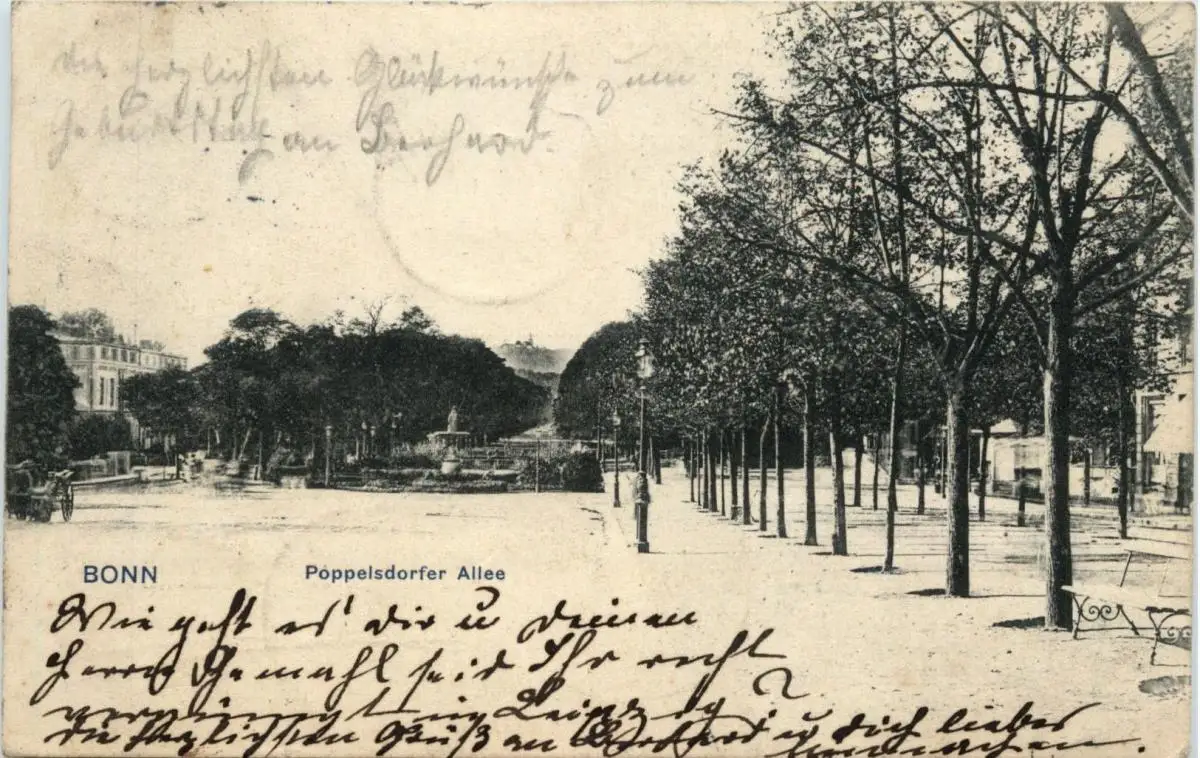 die herzlichsten Glückwünsche zum
Geburtstag an Gerhard.
BONN Poppelsdorfer Allee
Wie geht es dir u deinen
Herrn Gemahl seid Ihr recht
vergnügt in Leipzig?
die herzlichsten Grüß an Gerhard u dich liebes